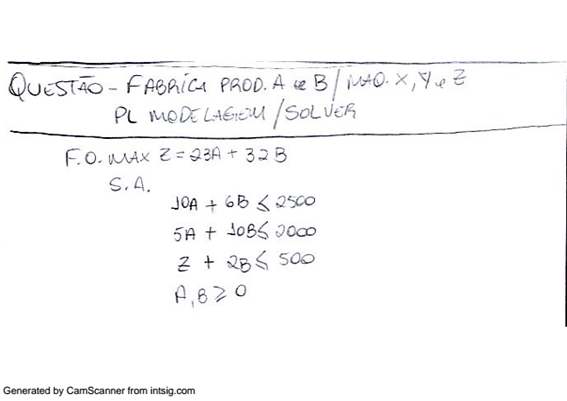 QUESTÃO - FABRICA PROD. A e B / MAQ. X, Y e Z
PL MODELAGEM / SOLVER
F.O. MAX Z = 23A + 32B
S.A.
10A + 6B ≤ 2500
5A + 10B ≤ 2000
Z + 2B ≤ 500
A, B ≥ 0
Generated by CamScanner from intsig.com